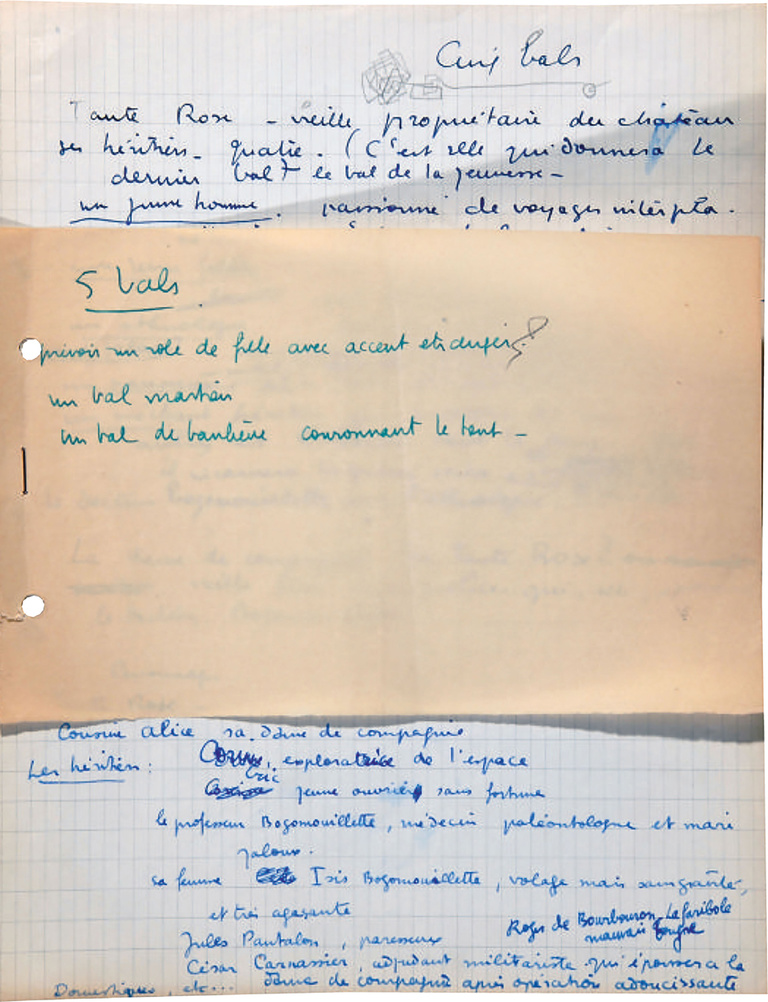 Cinq bals
Tante Rose - vieille propriétaire du château
ses héritiers - quatre. (C'est elle qui donnera le
dernier bal) le bal de la jeunesse -
un jeune homme. passionné de voyages interpla.
5 bals
prévoir un role de fille avec accent étranger?
un bal martien
un bal de banlieue couronnant le tout -
Cousine Alice sa dame de compagnie
Les héritiers : exploratrice de l'espace
Eric jeune ouvrier sans fortune
le professeur Bogomouillette, médecin paléontologue et mari
jaloux.
sa femme Isis Bogomouillette, volage mais sans gravité,
et très agaçante
Roger de Bourbouron-Lafaribole
mauvais
Jules Pantalon, paresseux
César Carnassier, adjudant militariste qui épousera la
dame de compagnie après opération adoucissante
Domestiques, etc...